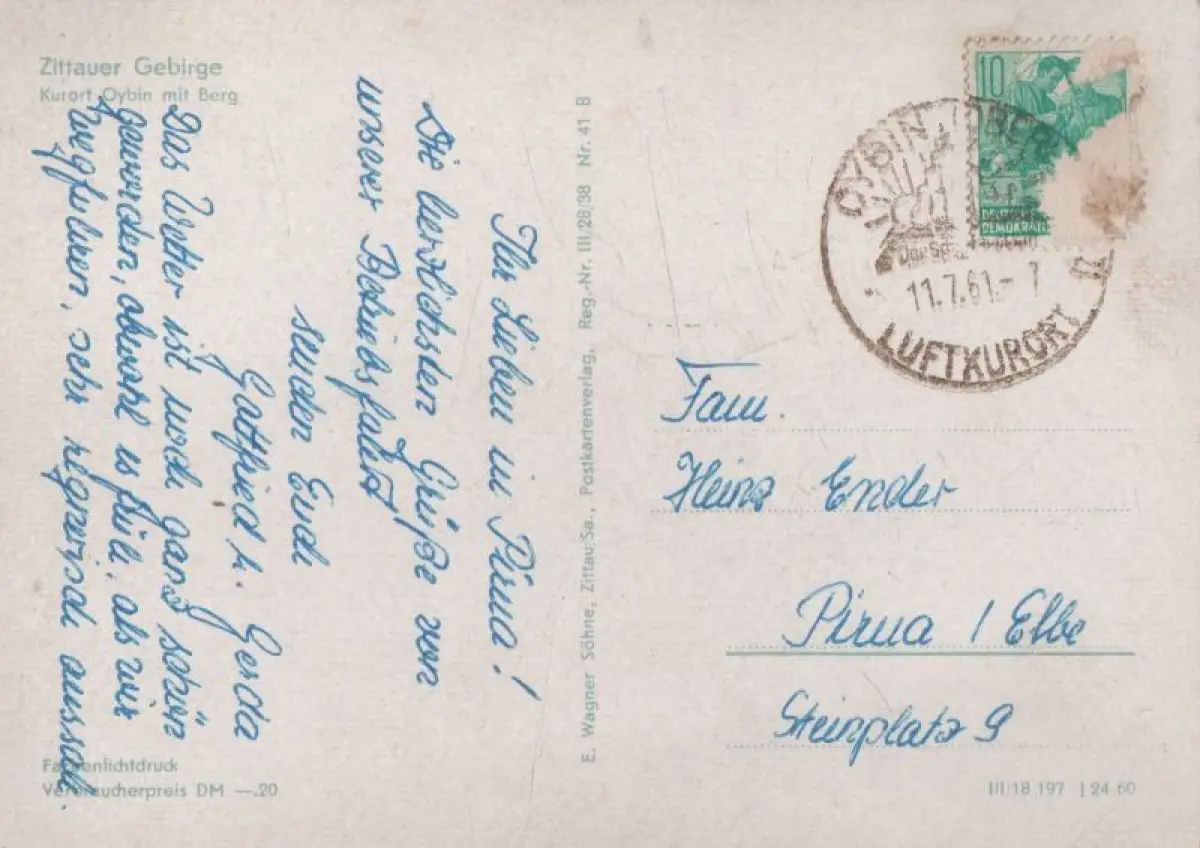 Zittauer Gebirge
Kurort Oybin mit Berg
Ihr Lieben in Pirna!
Die herzlichsten Grüße von
unserer Betriebsfahrt
senden Euch
Gottfried u. Gerda
Das Wetter ist noch ganz schön
geworden, obwohl es früh, als wir
wegfuhren, sehr regnerisch aussah.
Farbenlichtdruck
Verbraucherpreis DM —.20
E. Wagner Söhne, Zittau/Sa., Postkartenverlag, Reg.-Nr. III/28/38 Nr. 41 B
10
DEMOKRATI
OYBIN
11.7.61.- 7
LUFTKURORT
Fam.
Heinz Ender
Pirna / Elbe
Steinplatz 9
III/18 197 J 24 60